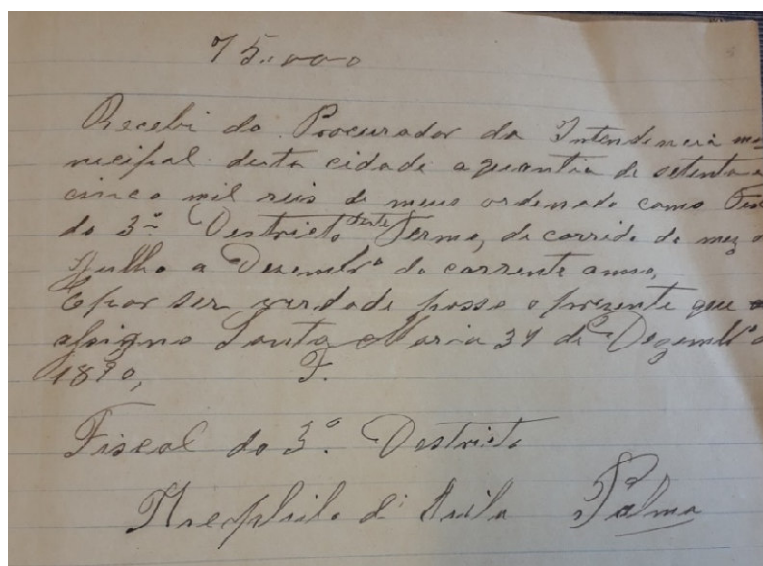 75.000
Recebi do Procurador da Intendencia mu
nicipal desta cidade a quantia de setenta e
cinco mil reis de meus ordenado como Fis
do 3º Destricto deste Termo, de corrido do mez
Julho a Desembrº do corrente anno,
E por ser verdade passo o prezente que
assigno Santa Maria 31 de Dezembrº
1890, F.
Fiscal do 3º Destricto
Theophilo d'Avila Palma